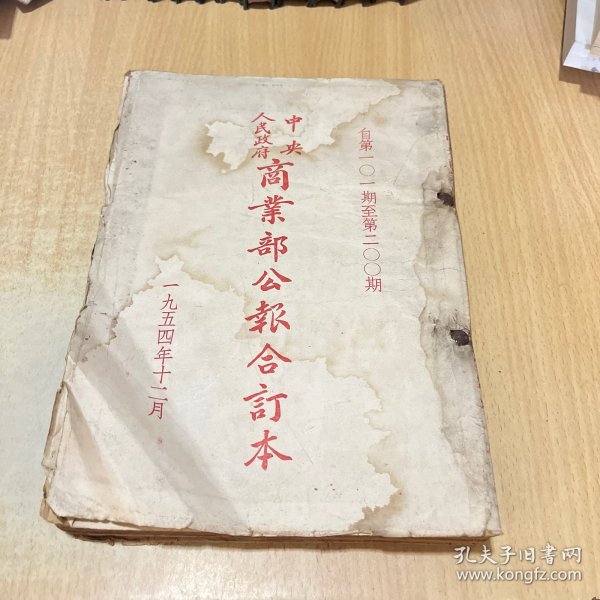 自第一〇一期至第二〇〇期
中央
人民政府
商業部公報合訂本
一九五四年十二月
孔夫子旧书网
www.kongfz.com